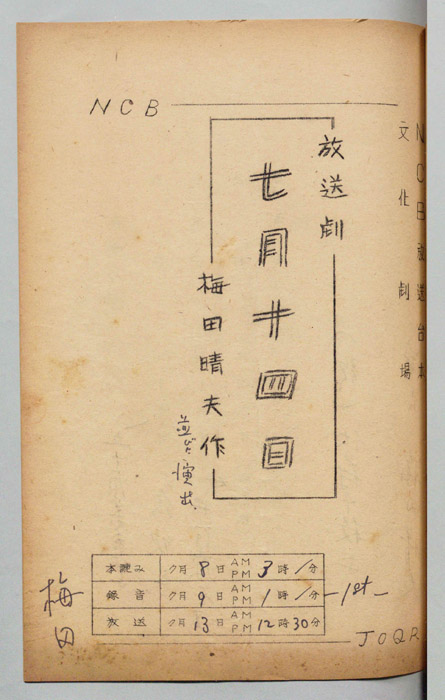 NCB
NCB放送台本
文化劇場
放送劇
七月十四日
梅田晴夫作
並ビ演出
本讀み 月 8日 AM PM 3時 /分
錄音 月 9日 AM PM 1時 /分 -1st-
放送 月 13日 AM PM 12時30分
梅田
JOQR